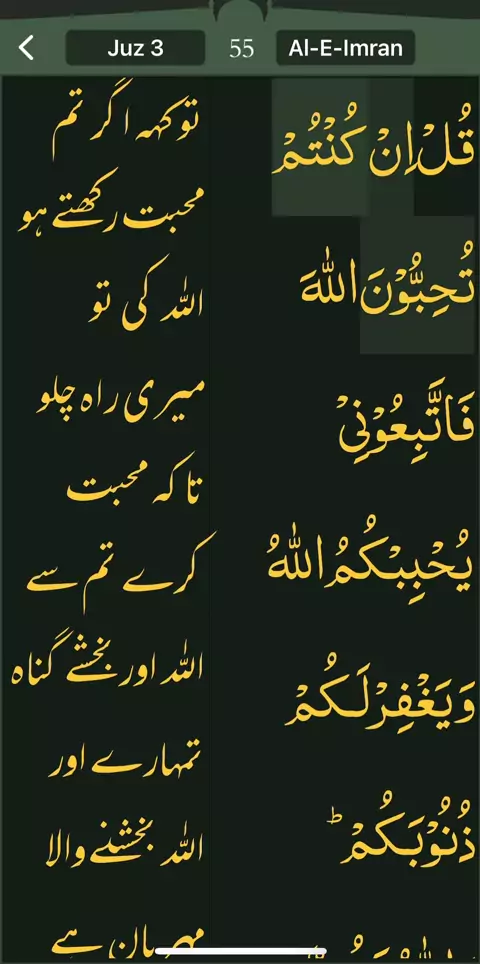 Juz 3 55 Al-E-Imran
قُلْ اِنْ كُنْتُمْ
تُحِبُّوْنَ اللّٰهَ
فَاتَّبِعُوْنِیْ
یُحْبِبْكُمُ اللّٰهُ
وَیَغْفِرْ لَكُمْ
ذُنُوْبَكُمْ ؕ
تو کہہ اگر تم
محبت رکھتے ہو
اللہ کی تو
میری راہ چلو
تا کہ محبت
کرے تم سے
اللہ اور بخشے گناہ
تمہارے اور
اللہ بخشنے والا
مہربان ہے